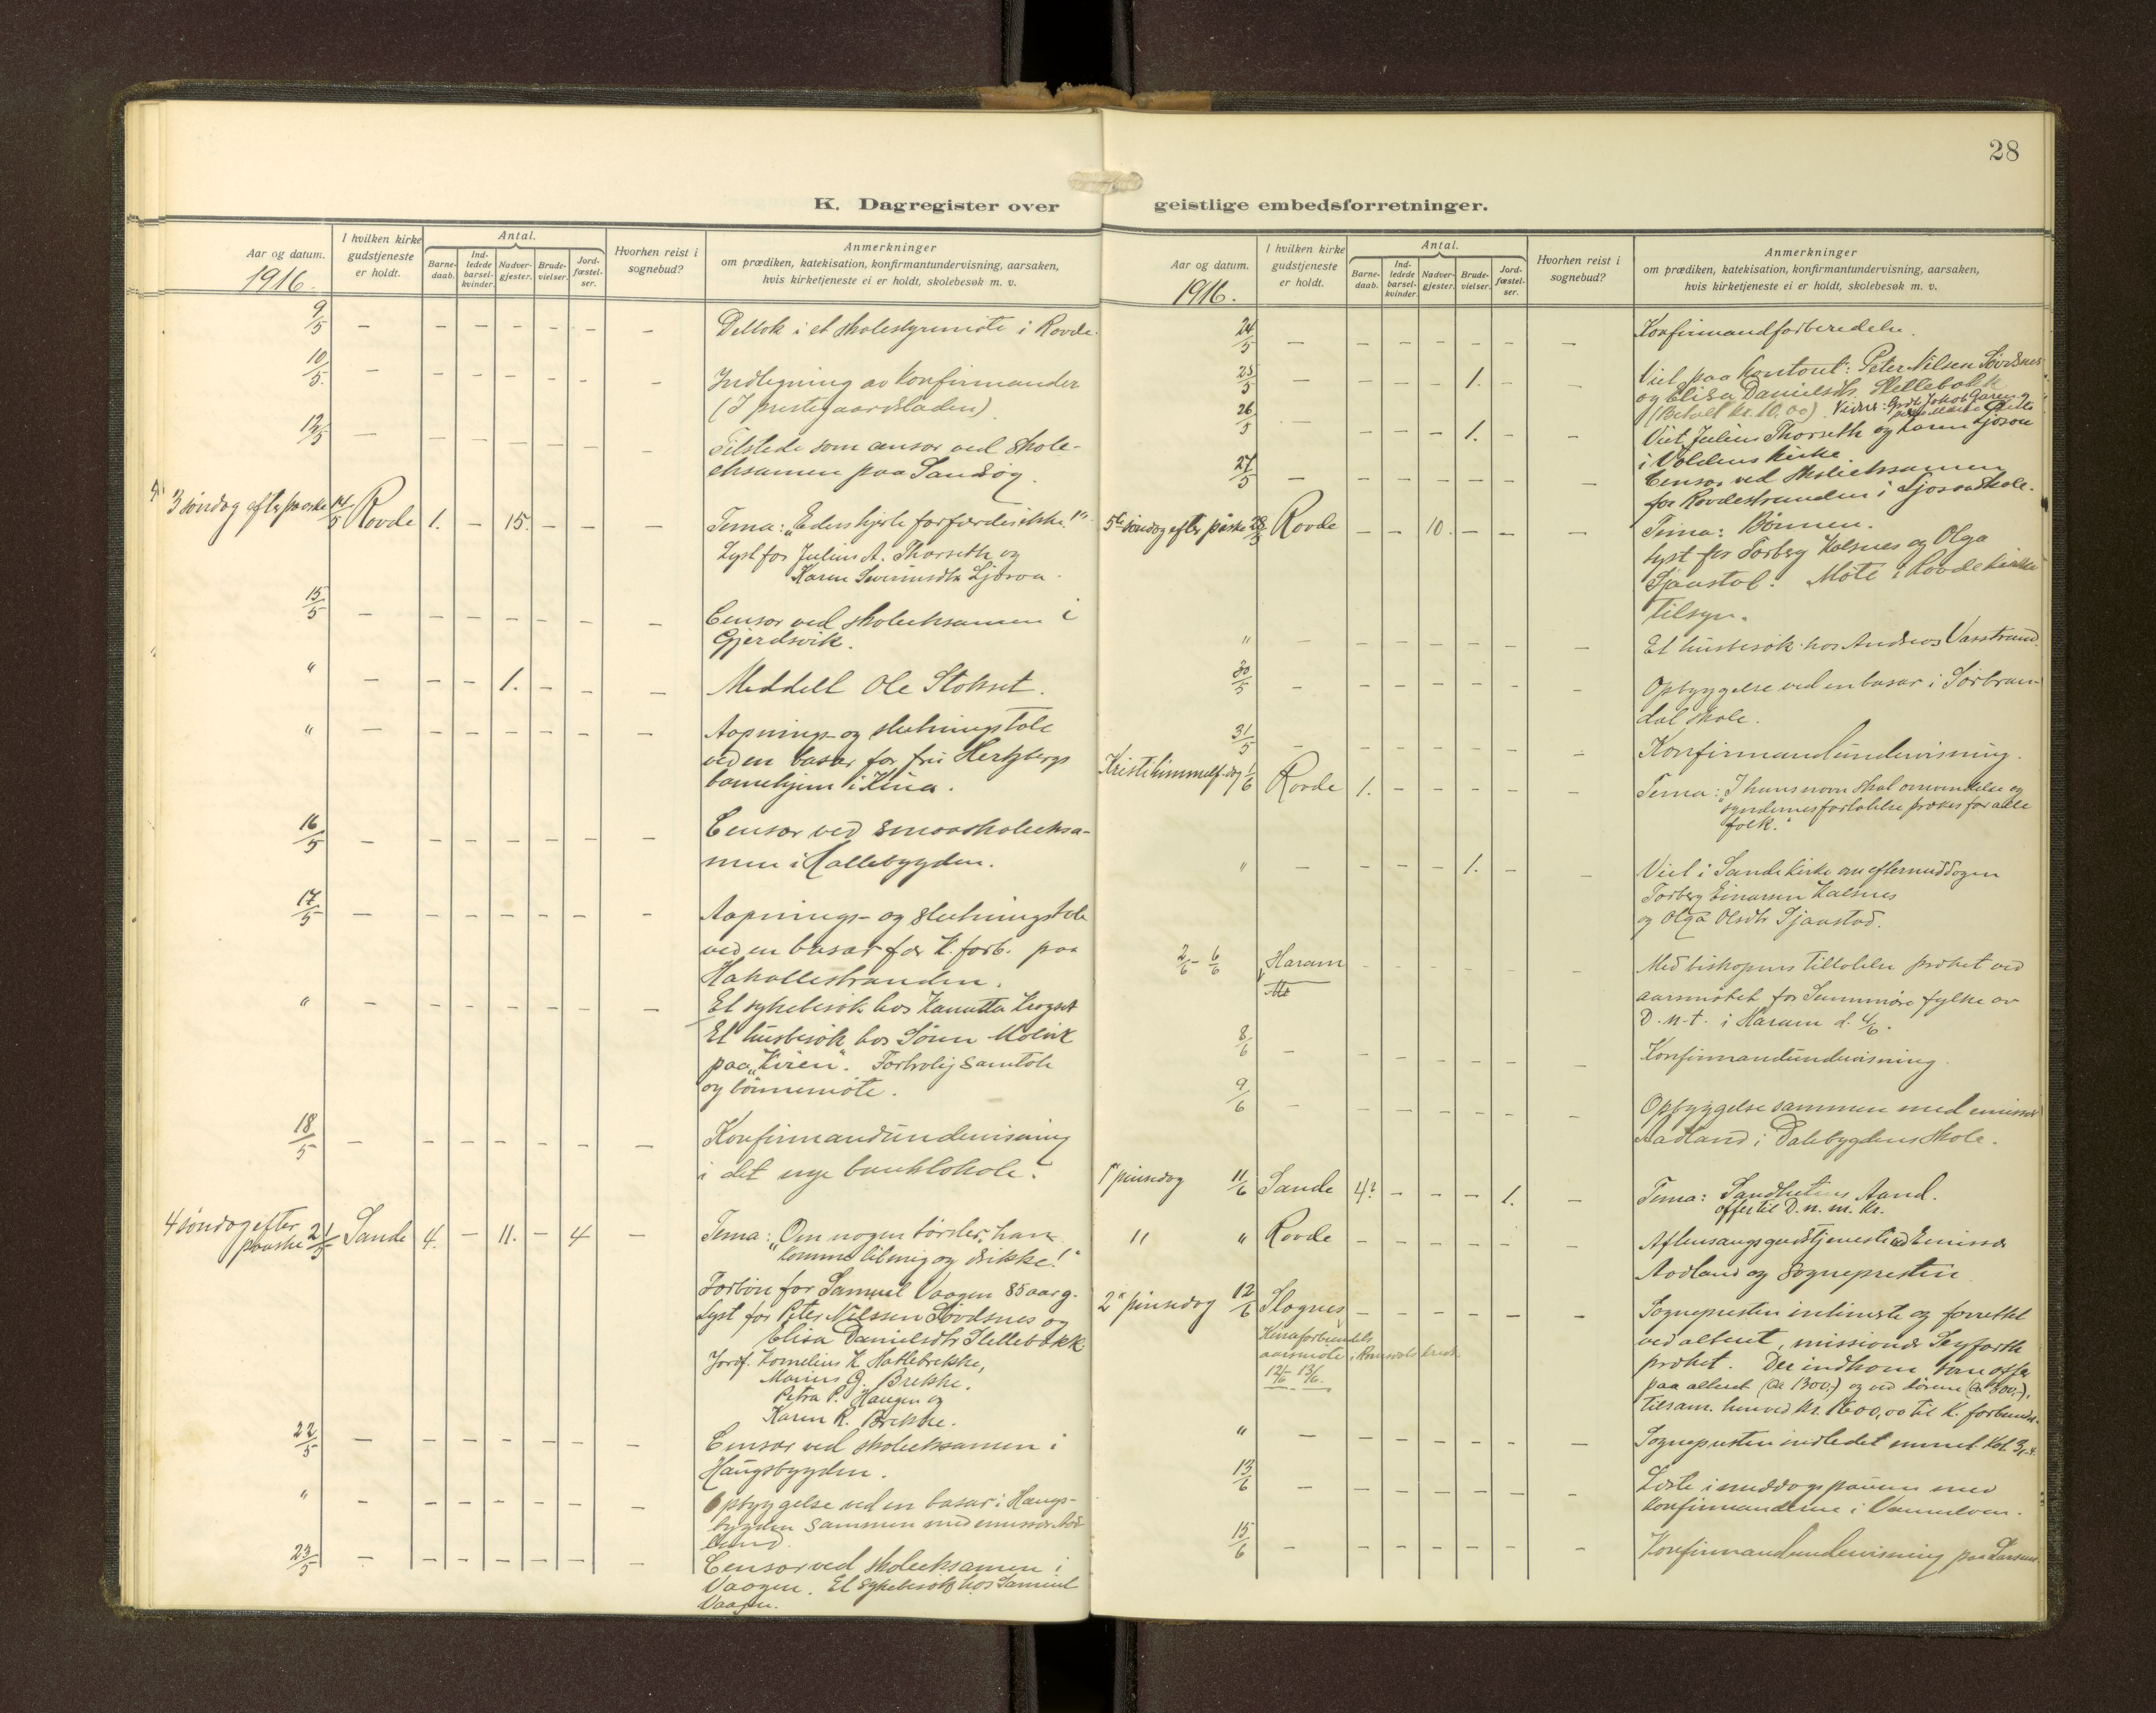 28
K. Dagregister over
geistlige embedsforretninger.
Aar og datum.
1916.
I hvilken kirke gudstjeneste er holdt.
Antal.
Barne-daab.
Ind-ledede barsel-kvinder.
Nadver-gjester.
Brude-vielser.
Jord-fæstel-ser.
Hvorhen reist i sognebud?
Anmerkninger
om prædiken, katekisation, konfirmantundervisning, aarsaken,
hvis kirketjeneste ei er holdt, skolebesøk m. v.
9/5 — — — — — — — Deltok i et skolestyremöte i Rovde.
10/5 — — — — — — — Indlegning av konfirmander
(I prestegaardsladen)
12/5 — — — — — — — Tilstede som censor ved skole-
eksamen paa Sandsöy.
3 söndag efter paaske 14/5 Rovde 1. — 15. — — — Tema: "Eders hjerte forfærdes ikke!"
Lyst for Julius A. Thorseth og
Karen Severinsdtr Ljösoa.
15/5 — — — — — — — Censor ved skoleeksamen i
Gjerdsvik.
" — — — 1. — — — Meddelt Ole Stokset.
" — Aapnings- og slutningstale
ved en basar for frú Hertzbergs
barnehjem i Kina.
16/5 — — — — — — — Censor ved smaaskoleeksa-
men i Hallebygden.
17/5 — — — — — — — Aapnings- og slutningstale
ved en basar for K. forb. paa
Hakallestranden.
" — — — — — — — Et sykebesök hos
Et húsbesök hos Sören Molvik
paa "Kvien". Fortrolig samtale
og bönnemöte.
18/5 — — — — — — — Konfirmandúndervisning
i det nye banklokale.
4 söndag efter
paaske 21/5 Sande 4. — 11. — 4 — Tema: "Om nogen törster, han
komme til mig og drikke!"
Forbön for Samuel Vaagen 85 aar g.
Lyst for Peter Nilssen Sövdsnes og
Elisa Danielsdtr Hellebakk.
Jordf. Kornelius K. Hatlebrekke,
Marius G. Brekke.
Petra P. Haugen og
Karen R. Brekke.
22/5 — — — — — — — Censor ved skoleeksamen i
Haúgsbygden.
" — — — — — — — Opbyggelse ved en basar i Haugs-
bygden sammen med emissær Aad-
land.
23/5 — — — — — — — Censor ved skoleeksamen i
Vaagen. Et sykebesök hos Samuel
Vaagen.
Aar og datum.
1916.
I hvilken kirke gudstjeneste er holdt.
Antal.
Barne-daab.
Ind-ledede barsel-kvinder.
Nadver-gjester.
Brude-vielser.
Jord-fæstel-ser.
Hvorhen reist i sognebud?
Anmerkninger
om prædiken, katekisation, konfirmantundervisning, aarsaken,
hvis kirketjeneste ei er holdt, skolebesøk m. v.
24/5 — — — — — — — Konfirmandforberedelse.
25/5 — — — — 1. — — Viet paa kontoret: Peter Nilsen Sövdsnes
og Elisa Danielsdtr. Hellebakk
(Betalt kr. 10,00). Vidner: Jakob Garen
26/5 — — — — 1. — — Viet Julius Thorseth og Karen Ljösoa
i Voldens kirke.
27/5 — — — — — — — Censor ved skoleeksamen
for Rovdestranden i Ljosoa skole.
5te söndag efter påske 28/5 Rovde — — 10. — — — Tema: Bönnen.
Lyst for Torberg Kalsnes og Olga
Sjaastad. Möte i Rovde kirke
tilsyn.
" — Et húsbesök hos Andreas Vasstrand.
30/5 — — — — — — — Opbyggelse ved en basar i Sörbran-
dal skole.
31/5 — — — — — — — Konfirmandúndervisning.
Kristi himmelf. dag 1/6 Rovde 1. — — — — — Tema: "I hans navn skal omvendelse og
syndernes forlatelse prækes for alle
folk."
" — — — — 1. — Viet i Sande kirke om eftermiddagen
Torberg Einarsen Kalsnes
og Olga Olsdtr Sjaastad.
2/6 - 6/6 Haram — Med biskopens tillatelse præket ved
aarsmötet for Sunnmöre fylke av
D.n.t. i Haram d. 4/6.
8/6 — — — — — — — Konfirmandúndervisning.
9/6 — — — — — — — Opbyggelse sammen med emissær
Aadland i Dalebygdens skole.
1ste pinsedag 11/6 Sande 4? — — — 1. — Tema: Sandhetens Aand.
offer til D.n.m. kr.
" " Rovde — — — — — — Aftensangsgudstjeneste ved Emissær
Aadland og Sognepresten
2n pinsedag 12/6 Slagnes — — — — — — Sognepresten intimerte og forrettet
Kinaforbundets
aarsmöte i Romsdals krets
12/6 - 13/6.
ved alteret, missionær Seyffarth
præket. Der indkom som offer
paa alteret (ca 1300,) og ved dörene (ca 300,),
tilsam. henved kr. 1600,00 til K. forbundet.
" — — — — — — — Sognepresten indledet emnet Kol. 3, 1-4.
13/6 — — — — — — — Læste i middagspausen med
konfirmanderne i Vannelven.
15/6 — — — — — — — Konfirmandundervisning paa Larsnes